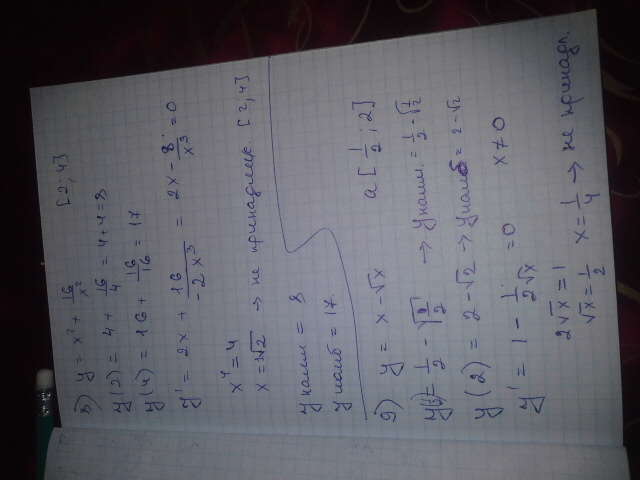 в) y = x² + 16/x² [2; 4]
y(2) = 4 + 16/4 = 4+4=8
y(4) = 16 + 16/16 = 17
y' = 2x + 16/-2x³ = 2x - 8/x³ = 0
x⁴ = 4
x = ±√2 → не принадлеж. [2; 4]
y наим = 8
y наиб = 17.
g) y = x - √x a [1/2; 2]
y(½) = 1/2 - √1/2 → y наим. = 1/2 - √1/2
y(2) = 2 - √2 → y наиб = 2 - √2
y' = 1 - 1/2√x = 0 x ≠ 0
2√x = 1
√x = 1/2 x = 1/4 → не принадл.